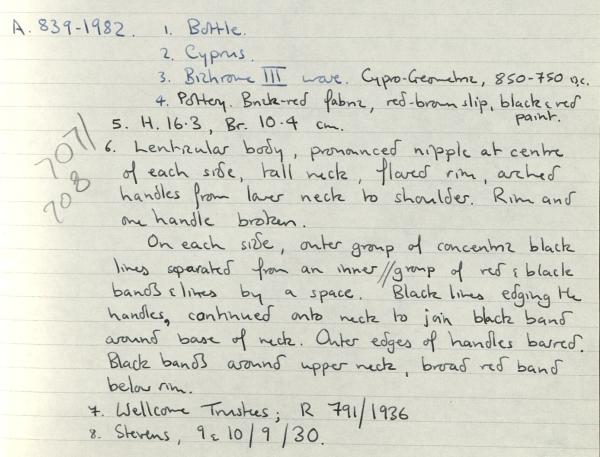 A. 839-1982. 1. Bottle.
2. Cyprus.
3. Bichrome III ware. Cypro-Geometric, 850-750 B.C.
4. Pottery. Brick-red fabric, red-brown slip, black & red
paint.
5. H. 16.3, Br. 10.4 cm.
7071
708
6. Lenticular body, pronounced nipple at centre
of each side, tall neck, flared rim, arched
handles from lower neck to shoulder. Rim and
one handle broken.
On each side, outer group of concentric black
lines separated from an inner // group of red & black
bands & lines by a space. Black lines edging the
handles, continued onto neck to join black band
around base of neck. Outer edges of handles barred.
Black bands around upper neck, broad red band
below rim.
7. Wellcome Trustees; R 791/1936
8. Stevens, 9 & 10/9/30.